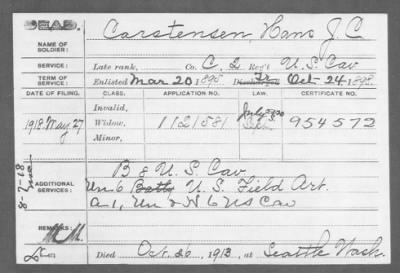 DEAD.
NAME OF SOLDIER: Carstensen, Hans J. C.
SERVICE: Late rank, Co. C, 2 Reg't U. S. Cav
TERM OF SERVICE: Enlisted Mar 20 1895 Discharged Oct. 24, 1898
DATE OF FILING. CLASS. APPLICATION NO. LAW. CERTIFICATE NO.
Invalid,
1918 May 27 Widow, 1121581 954572
Minor,
ADDITIONAL SERVICES: B 8 U. S. Cav
Un 6 Batt U. S. Field Art.
6 US Cav
8-7-18
REMARKS:
Died Oct. 26, 1913, at Seattle Wash.